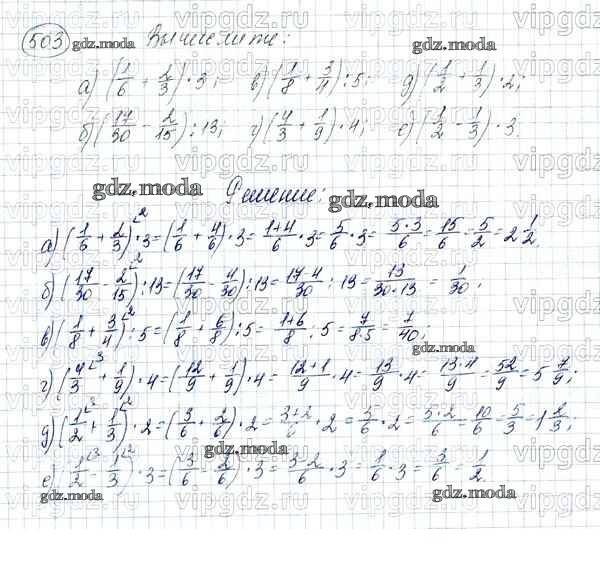 503 gdz.moda Вычислите: gdz.moda
а) (1/6 + 2/3) · 3; в) (1/8 + 3/4) : 5; д) (1/2 + 1/3) · 2;
б) (17/30 - 2/15) : 13; г) (4/3 + 1/9) · 4; е) (1/2 - 1/3) · 3.
gdz.moda Решение: gdz.moda
а) (1/6 + 2/3^2) · 3 = (1/6 + 4/6) · 3 = 1+4/6 · 3 = 5/6 · 3 = 5·3/6 = 15/6 = 5/2 = 2 1/2.
б) (17/30 - 2/15^2) : 13 = (17/30 - 4/30) : 13 = 17-4/30 : 13 = 13/30·13 = 1/30;
в) (1/8 + 3/4^2) : 5 = (1/8 + 6/8) : 5 = 1+6/8 : 5 = 7/8·5 = 7/40;
gdz.moda
г) (4/3^3 + 1/9) · 4 = (12/9 + 1/9) · 4 = 12+1/9 · 4 = 13/9 · 4 = 13·4/9 = 52/9 = 5 7/9;
д) (1/2^3 + 1/3^2) · 2 = (3/6 + 2/6) · 2 = 3+2/6 · 2 = 5/6 · 2 = 5·2/6 = 10/6 = 5/3 = 1 2/3;
gdz.moda
е) (1/2^3 - 1/3^2) · 3 = (3/6 - 2/6) · 3 = 3-2/6 · 3 = 1/6 · 3 = 3/6 = 1/2.
gdz.moda gdz.moda